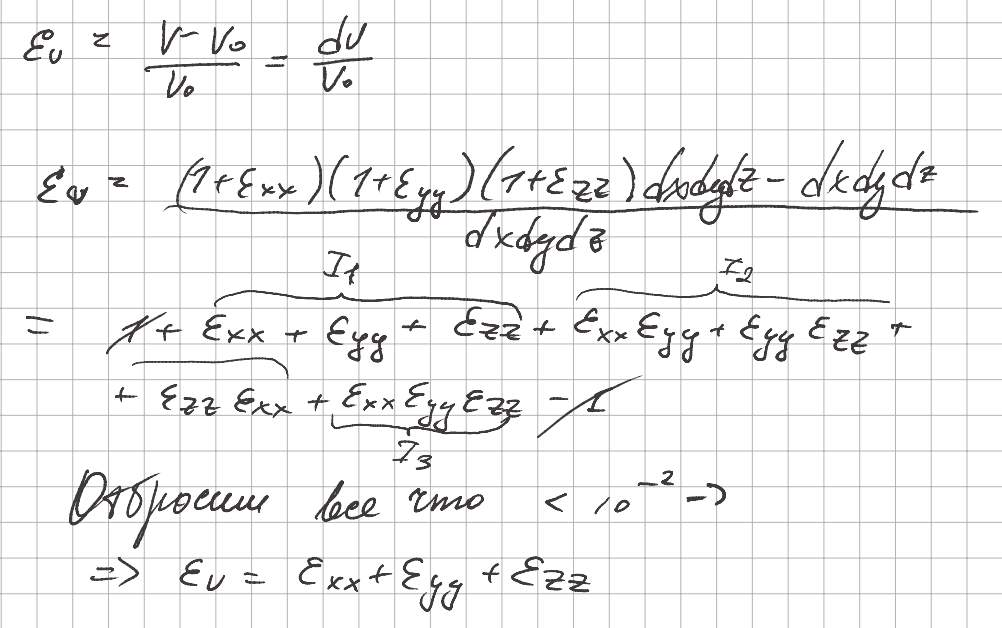 εᵥ = (V - V₀)/V₀ = dV/V₀
εᵥ = ((1+εxx)(1+εyy)(1+εzz)dxdydz - dxdydz)/dxdydz
I₁ I₂
= 1 + εxx + εyy + εzz + εxxεyy + εyyεzz +
+ εzzεxx + εxxεyyεzz - 1
I₃
Отбросим все что < 10⁻² ->
=> εᵥ = εxx + εyy + εzz